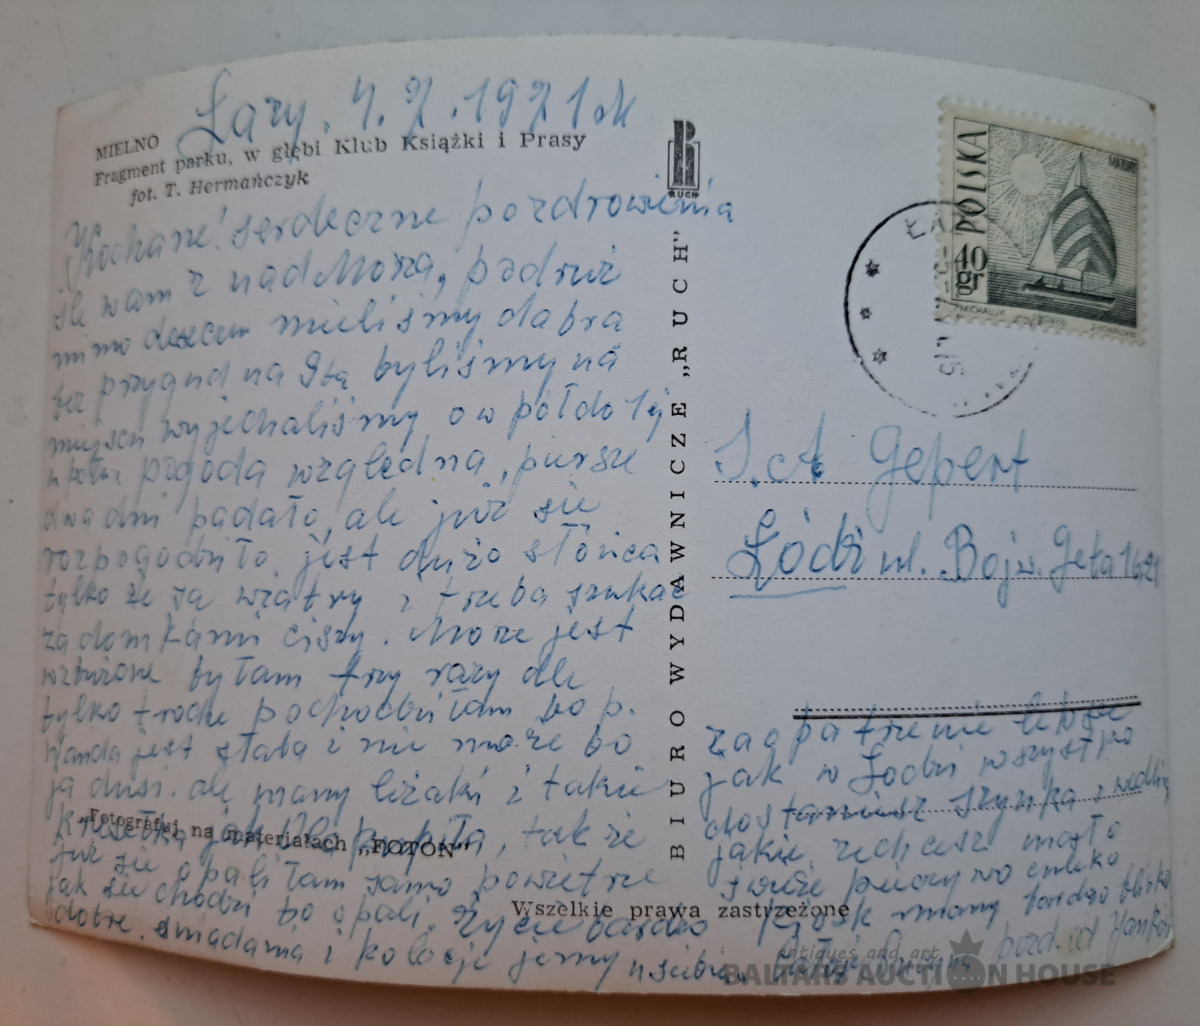 Łazy, 4.7.1971 rk
MIELNO
Fragment parku, w głębi Klub Książki i Prasy
fot. T. Hermańczyk
Kochane! serdeczne pozdrowienia
ślę wam z nad Moża, podruż
mimo deszczu mieliśmy dobra
bez przygud na 9tą byliśmy na
miejscu wyjechaliśmy o w pół do
pogoda względna, pirsze
dwa dni padało, ale już sie
rozpogodziło, jest dużo słońca
tylko że są wiatry i trzeba szukać
za domkami ciszy. Moze jest
wzburzone byłam trzy razy ale
tylko troche pochodziłam bo p.
Wanda jest słaba i nie może bo
ją dusi. ale mamy liżaki i takie
także
już sie opaliłam samo powietrze
jak sie chodzi to opali, życie bardzo
dobre, śniadania i kolacje jemy u siebie
„Fotografia na materiałach „FOTON"
Wszelkie prawa zastrzeżone
BIURO WYDAWNICZE „RUCH"
RUCH
POLSKA
40 gr
I. A Gepert
Łódź ul. Bojw. Geta
zaopatrzenie lepsze
jak w Łodzi wszystko
dostaniesz szynka i wedlinę
jakie zechcesz masło
świeże pieczywo mleko
Kiosk mamy bardzo blisko
pozd. od
antiques and art
BALTARS AUCTION HOUSE